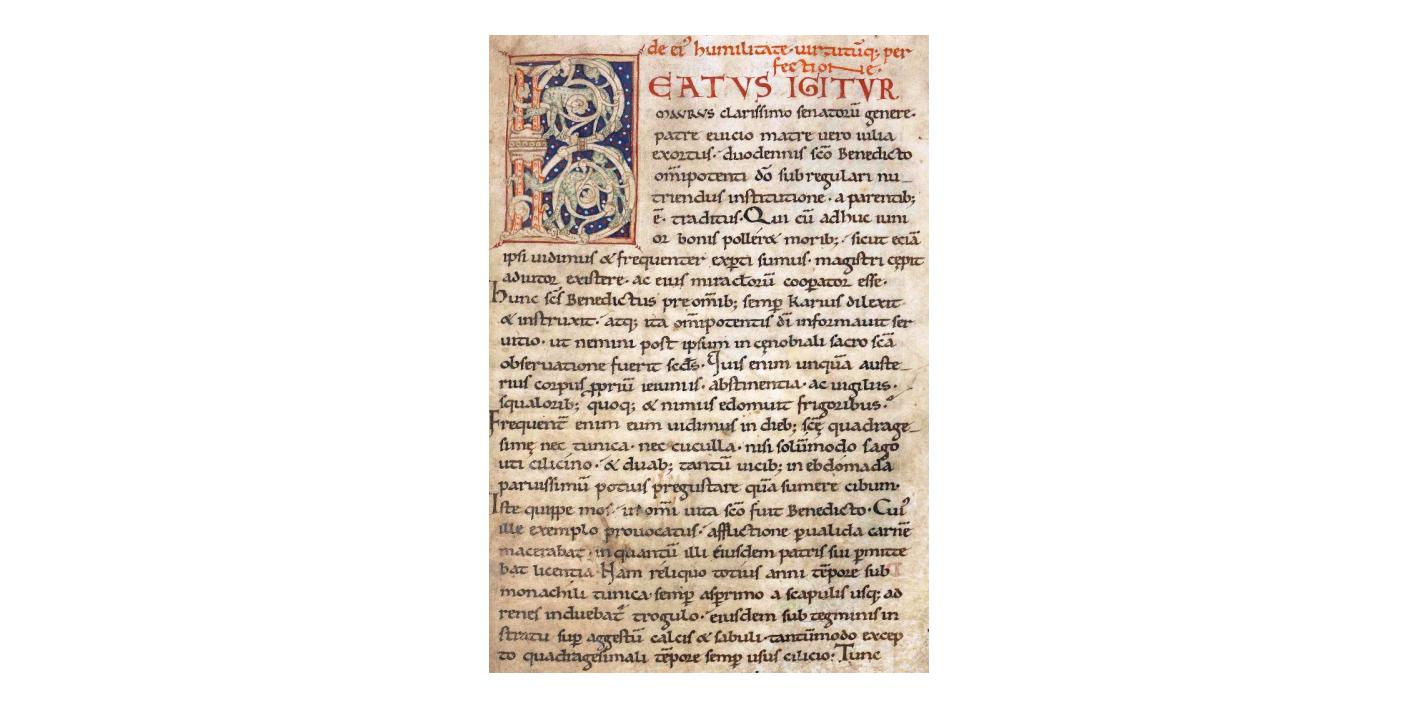 de ei᾿ humilitate· uirtutūq; per
fectione·
BEATVS IGITVR
MAURUS clarissimo senatorū genere·
patre euicio matre uero iulia
exortus· duodennis scō Benedicto
om̅ipotenti dō sub regulari nu_
triendus institutione· a parentib;
ē· traditus· Qui cū adhuc iuni
or bonis polleret morib; sicut eciā
ipsi uidimus & frequenter exꝑti sumus· magistri cępit
adiutor existere· ac eius miraclorū cooꝑator esse·
Hunc scs̄ Benedictus pre omib; semꝑ karius dilexit
& instruxit· atq; ita om̅ipotentis dī informauit ser
uitio· ut nemini post ipsum in cęnobiali sacro scā
obseruatione fuerit scds̄· Quis enim unquā auste_
rius corpus ꝓpriū ieiuniis· abstinentia· ac uigiliis·
squalorib; quoq; & nimiis edomuit frigoribus·
Frequent̄ enim eum uidimus in dieb; scę quadrage_
simę nec tunica· nec cuculla· nisi solūmodo sago
uti cilicino· & duab; tantū uicib; in ebdomada
paruissimū potius pregustare quā sumere cibum·
Iste quippe mos in omi uita scō fuit Benedicto· Cui᾿
ille exemplo prouocatus· afflictione ꝑualida carnē
macerabat· in quantū illi eiusdem patris sui ꝑmitte
bat licentia· Nam reliquo totius anni tēpore sub
monachili tunica semꝑ asꝑrimo a scapulis usq; ad
renes induebat̄ trogulo· eiusdem sub tegminis in
stratu suꝑ aggestū calcis & sabuli tantūmodo excep
to quadragesimali tēpore semꝑ usus cilicio· Tunc